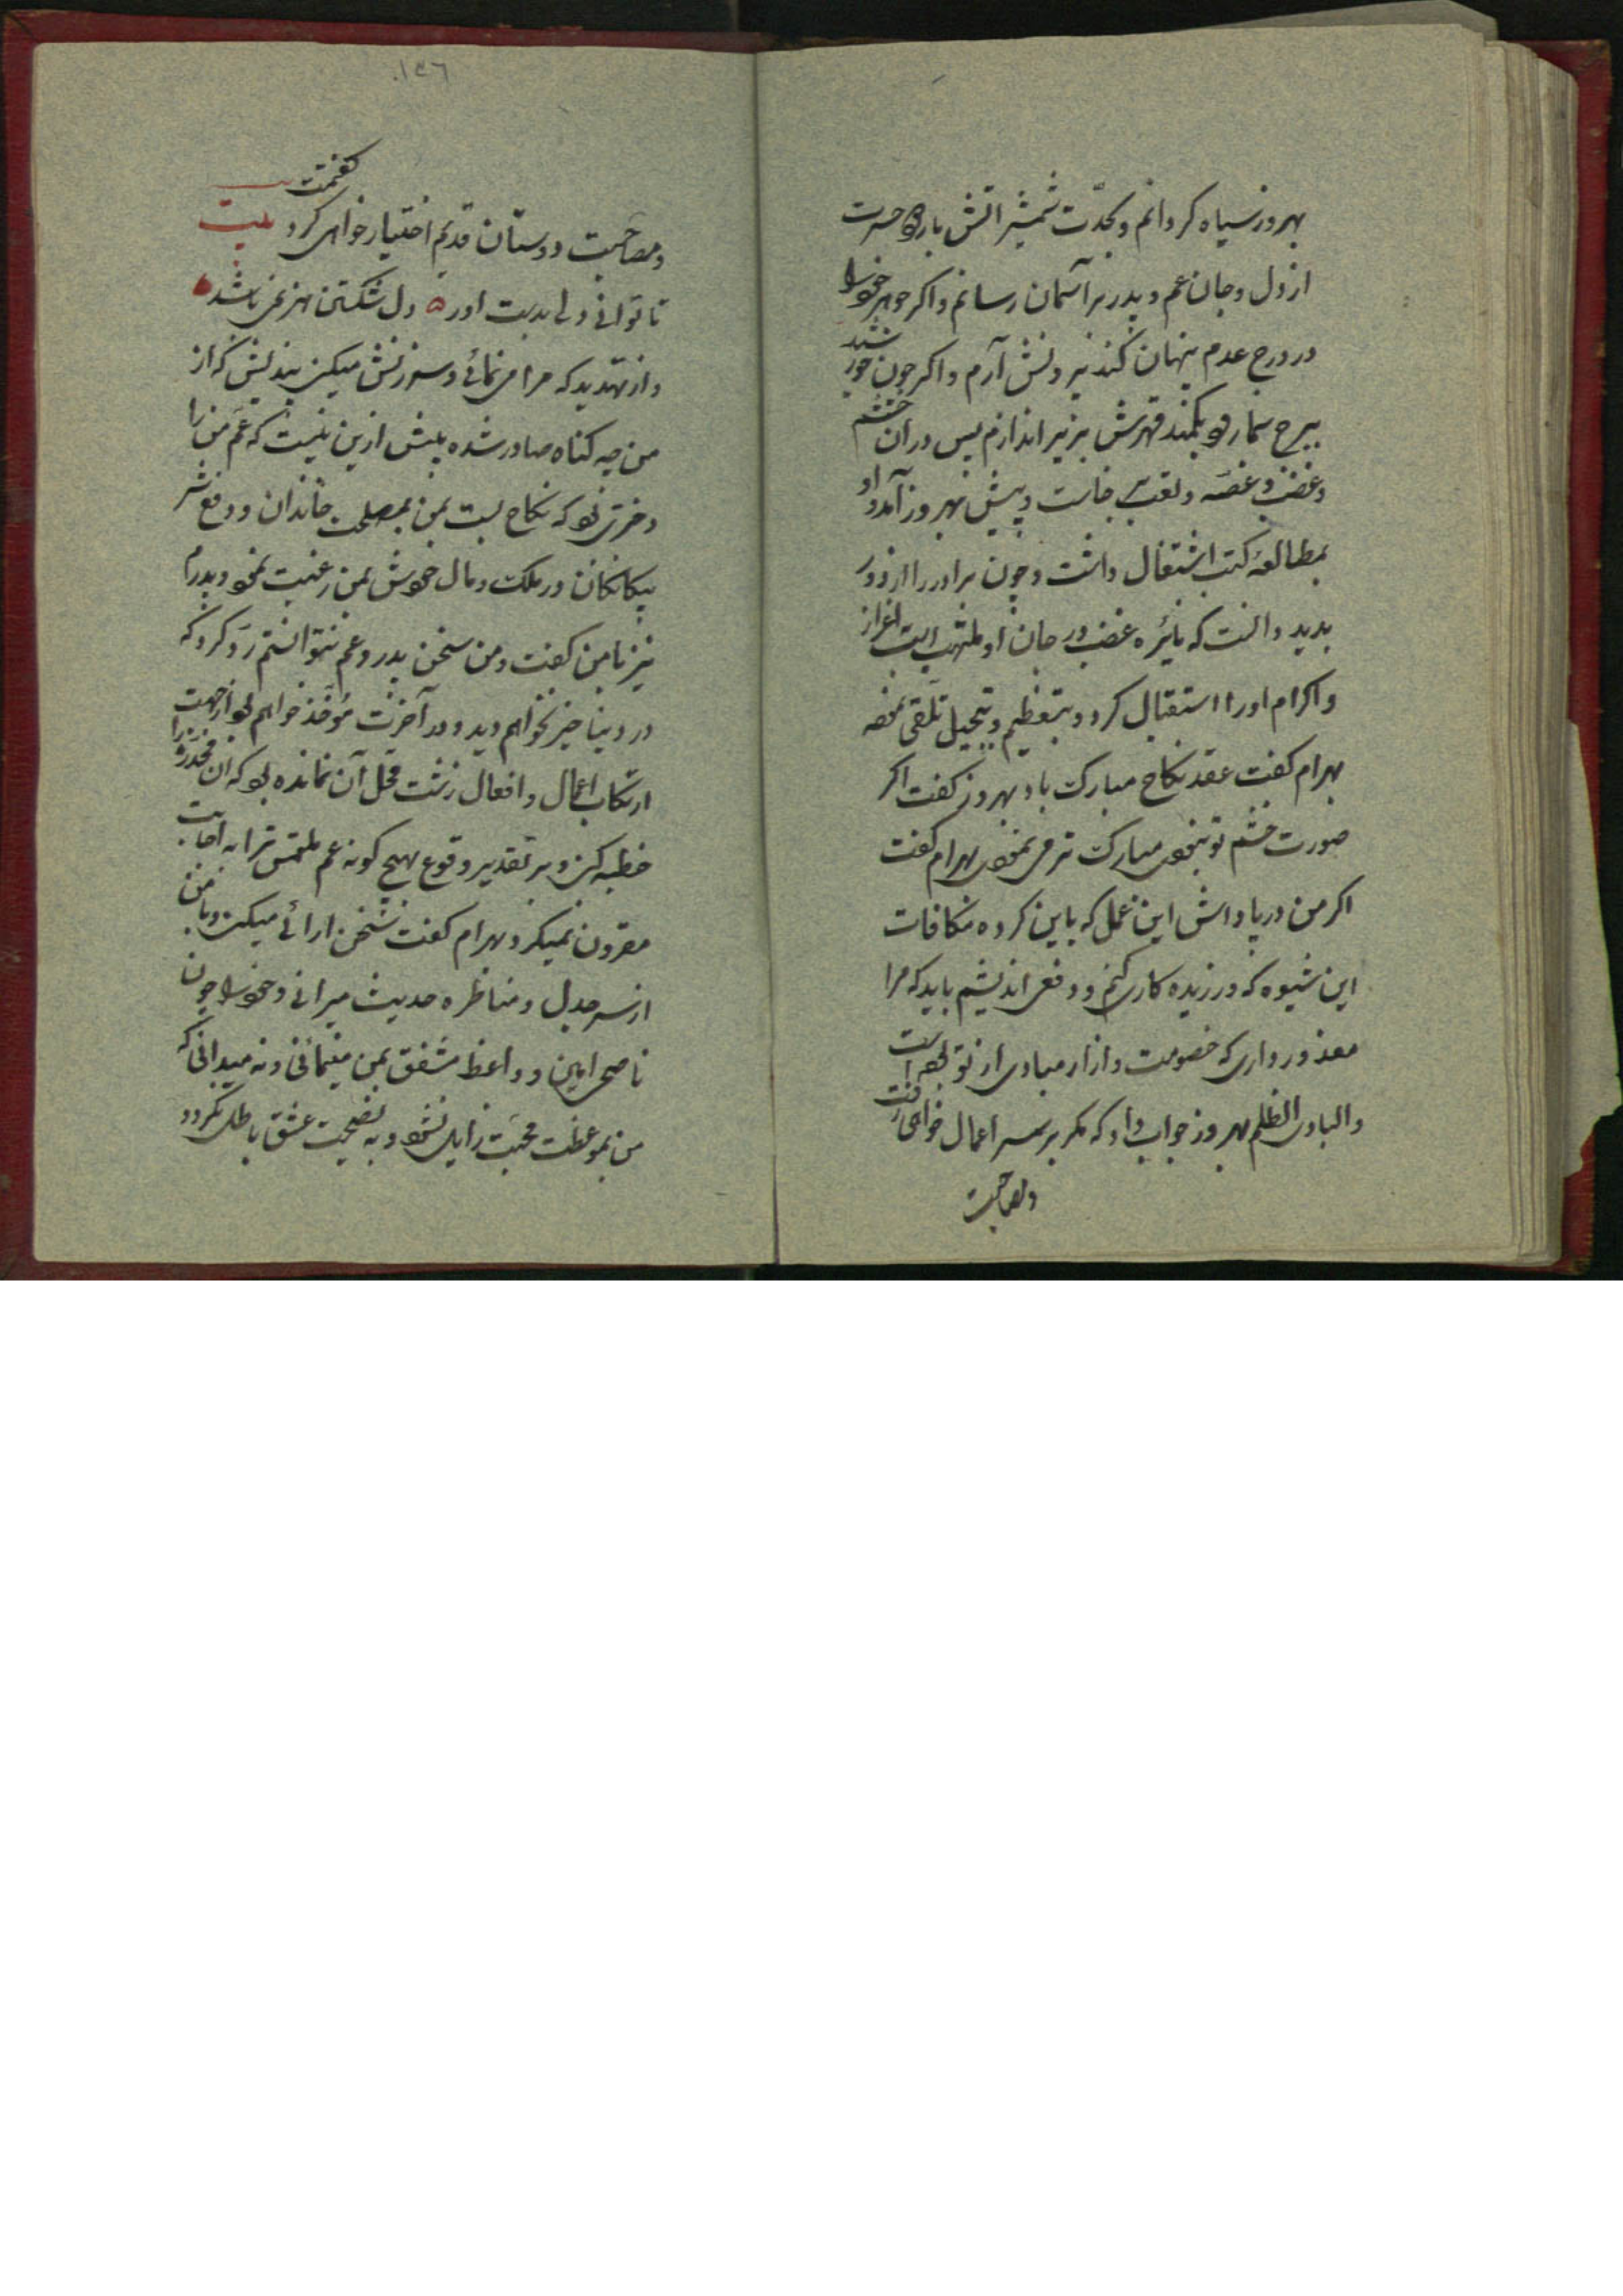 بهروز سیاه کردانم و بحدّت شمشیر اتش بار دود حسرت
از دل و جان عم و پدر بر آسمان رسانم و اکر جوهر خود را
در درج عدم پنهان کند بیرونش آرم و اکر چون خورشید
ببرج سمارود بکمند قهرش بزیر اندازم پس در ان خشم
و غضب و غصه و تعب بر خاست و پیش بهروز آمد و او
بمطالعهٔ کتب اشتغال داشت و چون برادر را از دور
بدید دانست که نایٔره غضب در جان او ملتهب است اعزاز
و اکرام او را استقبال کرد و بتعظیم و تبجیل تلقی نمود
بهرام کفت عقد نکاح مبارک باد بهروز کفت اکر
صورت خشم تو نبودی مبارک تر می نمودی بهرام کفت
اکر من در پاداش این عمل که باین کرده مکافات
این شیوه که ورزیده کاری کنم و دفعی اندیشم باید که مرا
معذور داری که خصومت و ازار مبادی از تو بوده است
والبادی اظلم بهروز جواب داد که مکر بر سر اعمال خواهی رفت
ومصاحبت
١٣٦
ومصاحبت دوستان قدیم اختیار خواهی کرد کفتمت بیت
تا توانی دلی بدست اور ٥ دل شکستن هنر نمی باشد ٥
و از تهدید که مرا می نمائی و سرزنش میکنی بیندیش که از
من چه کناه صادر شده بیش ازین نیست که عم من را
دختری بود که نکاح بست بمن بمصلحت خاندان و دفع شر
بیکانکان در ملک و مال خویش بمن رغبت نمود و پدرم
نیز با من کفت و من سخن پدر و عم نتوانستم رد کرد که
در دنیا خیر نخواهم دید و در آخرت مؤخذ خواهم بود از جهت
ارتکاب اعمال و افعال زشت محل آن نمانده بود که ان مخدره را
خطبه کنی و بر تقدیر وقوع هیچ کونه عم ملتمس ترا به اجابت
مقرون نمیکرد بهرام کفت سخن ارائی میکنی و با من
از سر جدل و مناظره حدیث میرانی و خود را چون
ناصحی امین و واعظ مشفق بمن مینمائی و نه میدانی که
من بموعظت محبت زایل نشود و به نصیحت عشق باطل نکردد